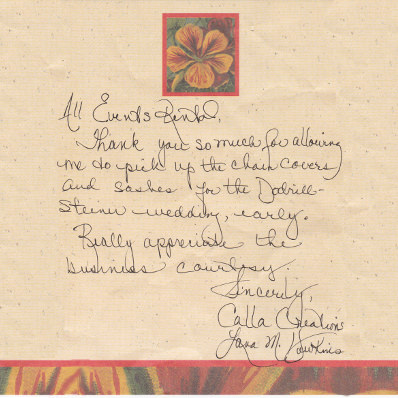 All Events Rental,
Thank you so much for allowing
me to pick up the chair covers
and sashes for the Dodrill-
Steiner wedding, early.
Really appreciate the
business courtesy.
Sincerely,
Calla Creations
Lana M. Hawkins